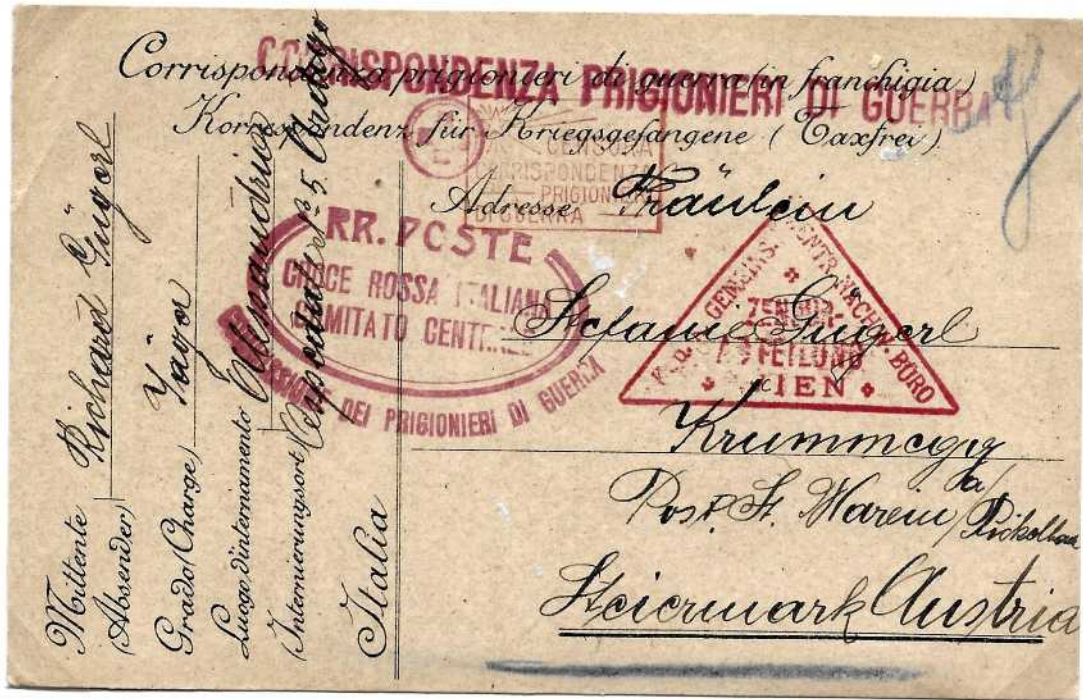 Corrispondenza prigionieri di guerra (in franchigia)
CORRISPONDENZA PRIGIONIERI DI GUERRA
Korrespondenz für Kriegsgefangene (Taxfrei).
CENSURA
CORRISPONDENZA
PRIGIONIERI
DI GUERRA
Adresse Fräulein
Stefanie Gügerl
Krummegg
Post. St. Marein a/
Steiermark Austria
RR. POSTE
CROCE ROSSA ITALIANA
COMITATO CENTRALE
DEI PRIGIONIERI DI GUERRA
GEMEINS. ZENTR. NACHW. BÜRO
ZENSUR-
ABTEILUNG
WIEN
Mittente Richard Gügerl
(Absender)
Grado (Charge) Jäger
Luogo d'internamento Allessandria
(Internierungsort)
Italia